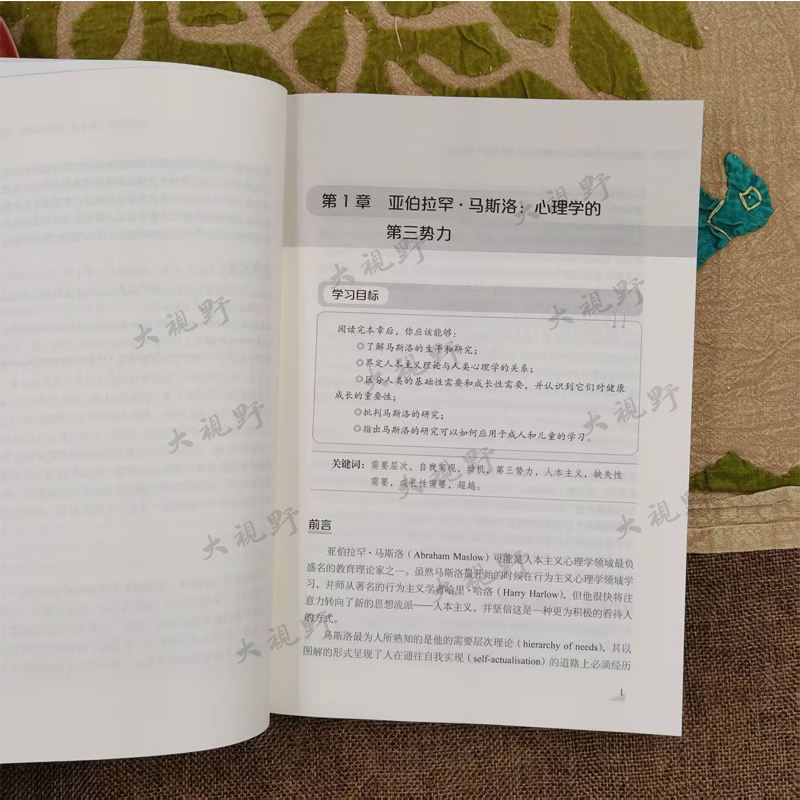 第1章 亚伯拉罕·马斯洛：心理学的
第三势力
学习目标
阅读完本章后，你应该能够：
◎了解马斯洛的生平和研究；
◎界定人本主义理论与人类心理学的关系；
◎区分人类的基础性需要和成长性需要，并认识到它们对健康
成长的重要性；
◎批判马斯洛的研究；
◎指出马斯洛的研究可以如何应用于成人和儿童的学习。
关键词：需要层次，自我实现，动机，第三势力，人本主义，缺失性
需要，成长性需要，超越。
前言
亚伯拉罕·马斯洛（Abraham Maslow）可能是人本主义心理学领域最负
盛名的教育理论家之一。虽然马斯洛最开始的时候在行为主义心理学领域学
习，并师从著名的行为主义学者哈里·哈洛（Harry Harlow），但他很快将注
意力转向了新的思想流派——人本主义，并坚信这是一种更为积极的看待人
的方式。
马斯洛最为人所熟知的是他的需要层次理论（hierarchy of needs），其以
图解的形式呈现了人在通往自我实现（self-actualisation）的道路上必须经历
1
大视野
大视野
大视野
大视野
大视野
大视野
大视野
大视野
大视野
大视野
大视野
大视野